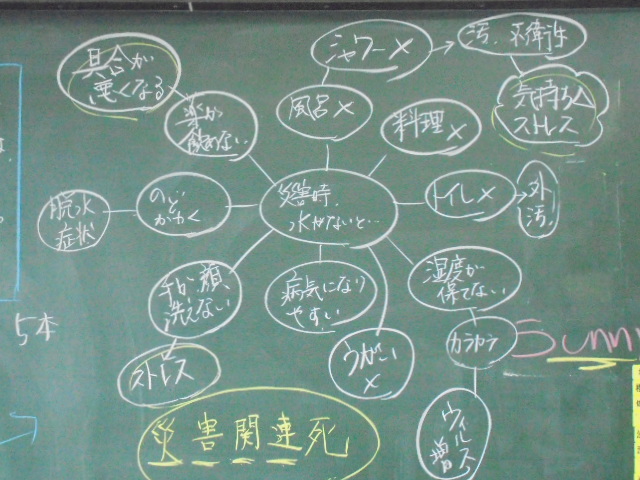 シャワー×
汚. 不衛生
具合が
悪くなる
風呂×
料理×
気持ち△
ストレス
薬が
飲めない
脱水
症状
のど
かわく
災害時.
水がないと…
トイレ×
外
汚.
手か顔
洗えない
病気になり
やすい
湿度が
保てない
5本
ストレス
うがい
×
カラカラ
Sunny
災害関連死
ウィルス
増